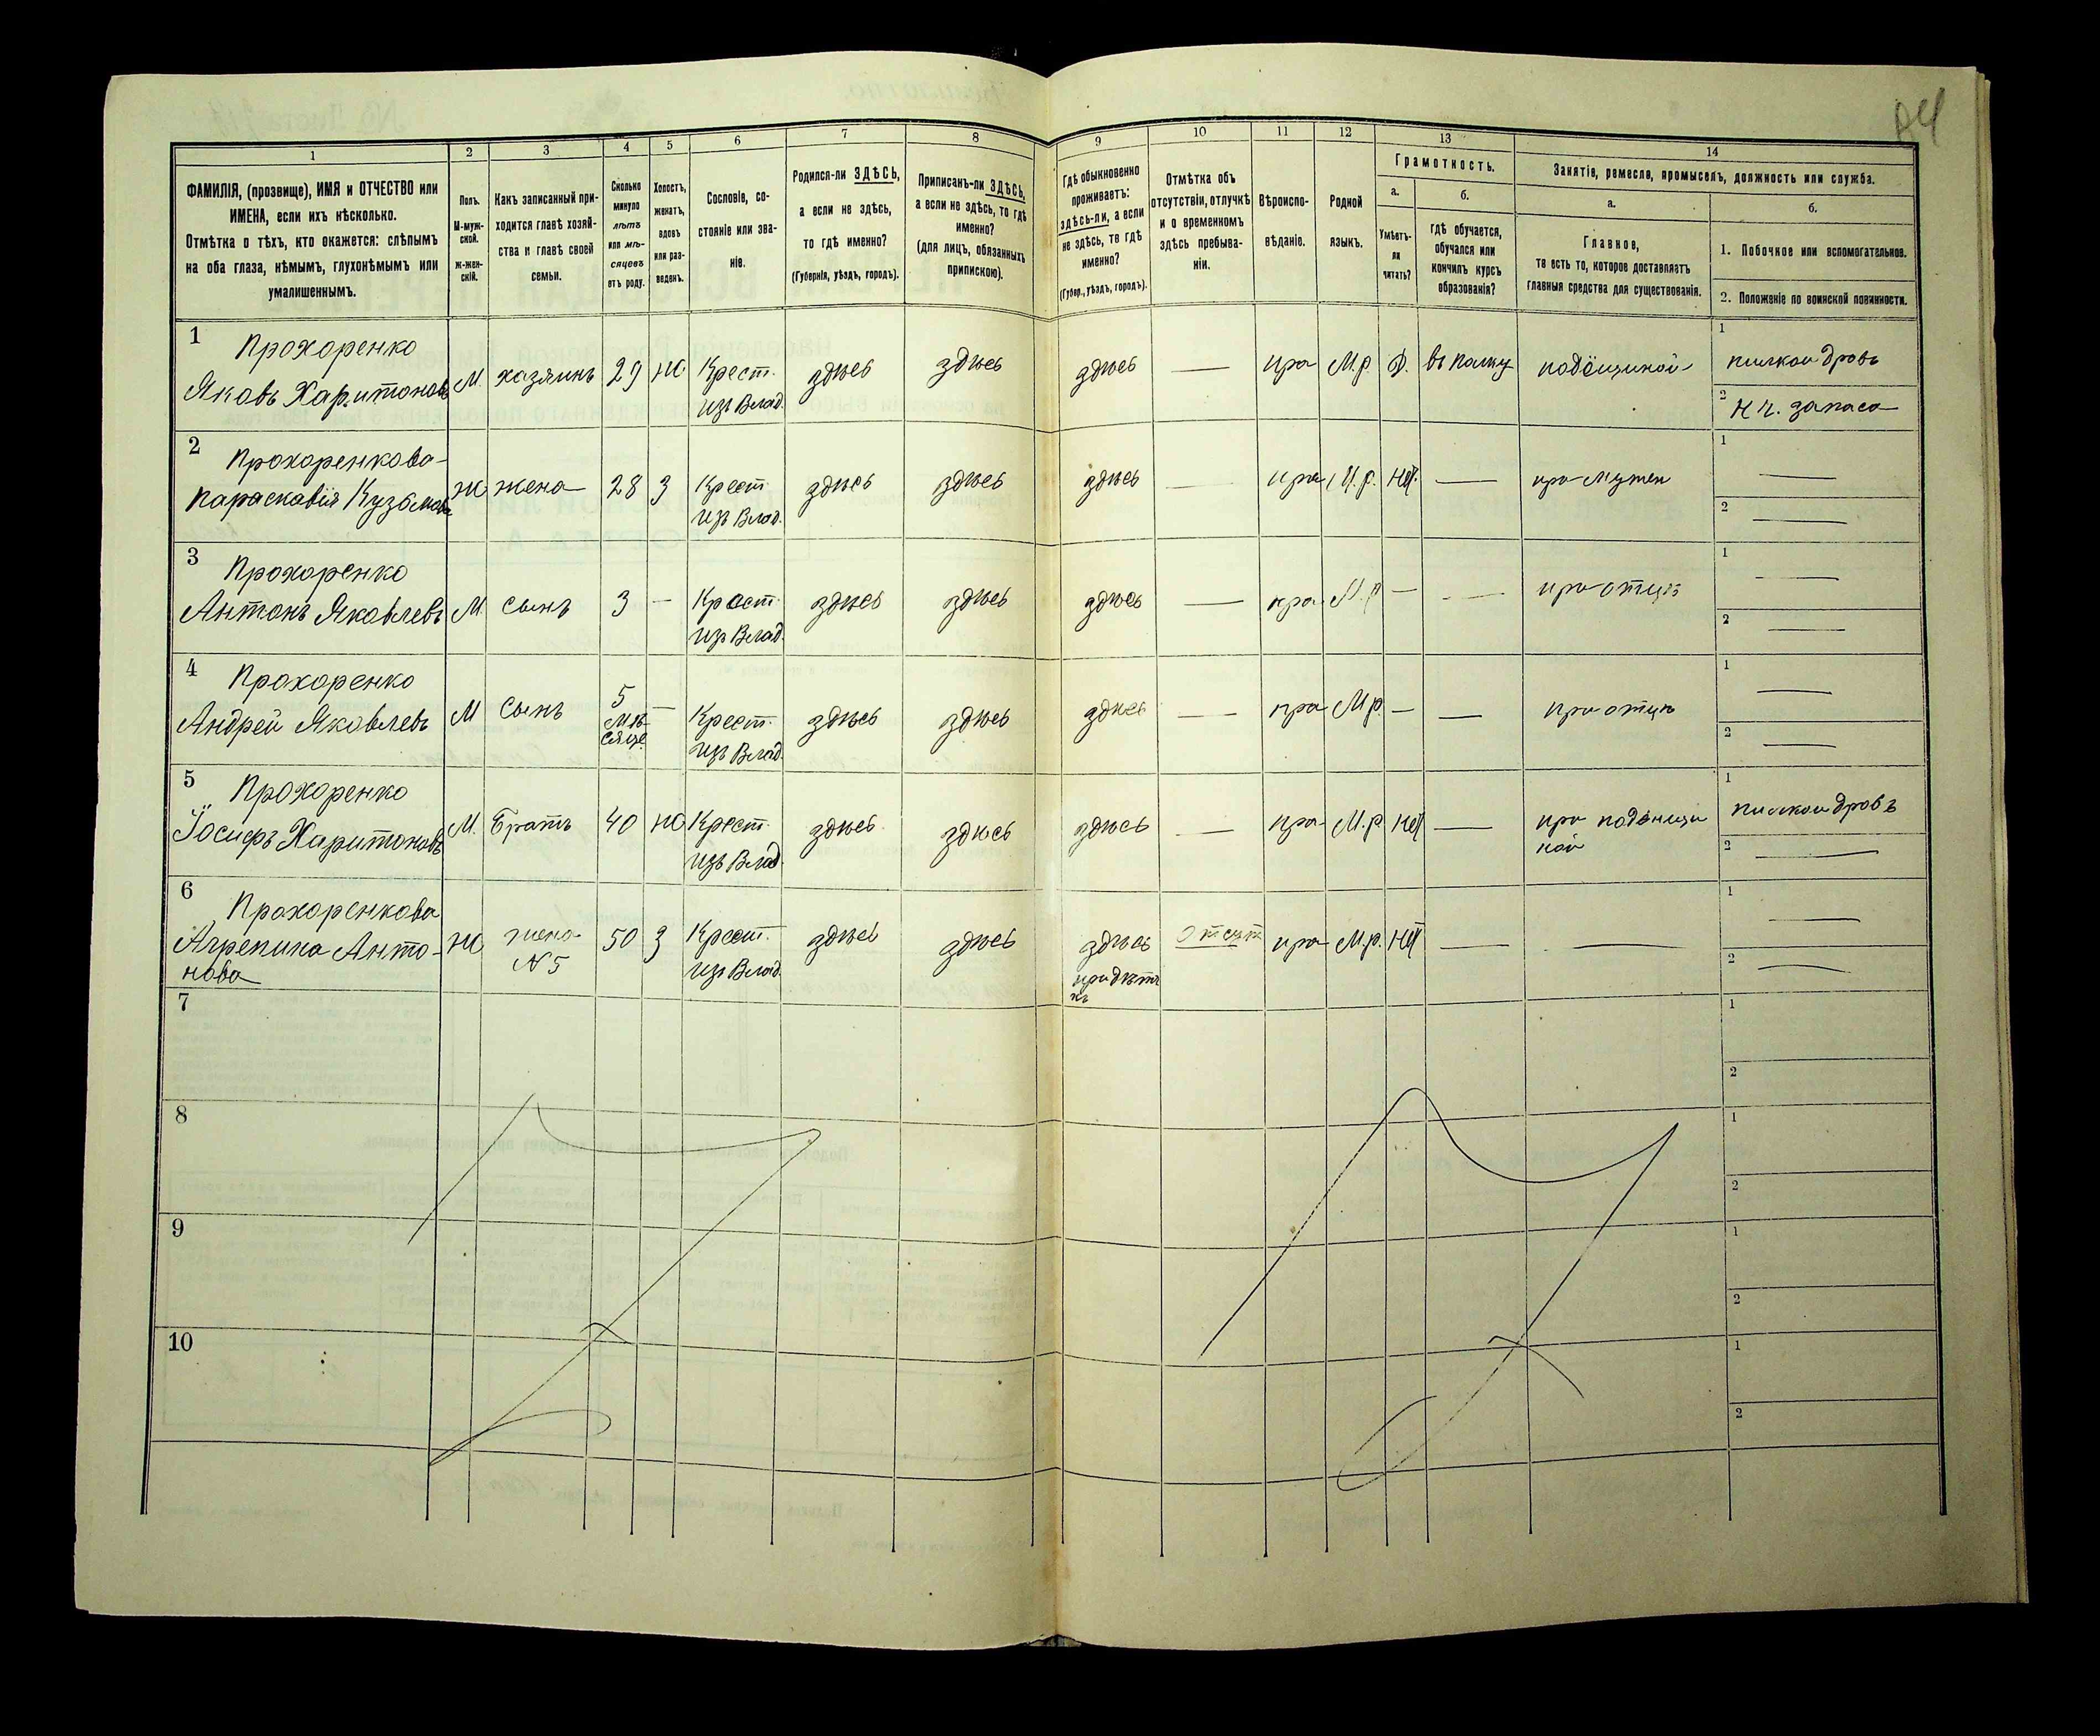 84
1 2 3 4 5 6 7 8 9 10 11 12 13 14
ФАМИЛІЯ, (прозвище), ИМЯ и ОТЧЕСТВО или
ИМЕНА, если ихъ нѣсколько.
Отмѣтка о тѣхъ, кто окажется: слѣпымъ
на оба глаза, нѣмымъ, глухонѣмымъ или
умалишеннымъ.
Полъ.
М-муж-
ской.
Ж-жен-
скій.
Какъ записанный при-
ходится главѣ хозяй-
ства и главѣ своей
семьи.
Сколько
минуло
лѣтъ
или мѣ-
сяцевъ
отъ роду.
Холостъ,
женатъ,
вдовъ
или раз-
веденъ.
Сословіе, со-
стояніе или зва-
ніе.
Родился-ли ЗДѢСЬ,
а если не здѣсь,
то гдѣ именно?
(Губернія, уѣздъ, городъ).
Приписанъ-ли ЗДѢСЬ,
а если не здѣсь, то гдѣ
именно?
(для лицъ, обязанныхъ
припискою).
Гдѣ обыкновенно
проживаетъ:
здѣсь-ли, а если
не здѣсь, то гдѣ
именно?
(Губер., уѣздъ, городъ).
Отмѣтка объ
отсутствіи, отлучкѣ
и о временномъ
здѣсь пребыва-
ніи.
Вѣроиспо-
вѣданіе.
Родной
языкъ.
Грамотность.
а.
Умѣетъ-
ли
читать?
б.
гдѣ обучается,
обучался или
кончилъ курсъ
образованія?
Занятіе, ремесло, промыселъ, должность или служба.
а.
Главное,
то есть то, которое доставляетъ
главныя средства для существованія.
б.
1. Побочное или вспомогательное.
2. Положеніе по воинской повинности.
1 Прохоренко
Яковъ Харитоновъ М. хазяинъ 29 Ж Крест. здѣсь здѣсь здѣсь — пра М.р. Д. въ полку подёщиной 1 пилкои дровъ
изъ Влад. 2 Н ч. запаса
2 Прохоренкова
Параскавія Кузьмова Ж жена 28 З Крест. здѣсь здѣсь здѣсь — пра М.р. нѣт. — при мужеи 1 —
изъ Влад. 2 —
3 Прохоренко
Антонъ Яковлевъ М сынъ 3 — Крест. здѣсь здѣсь здѣсь — пра М.р — — при отцѣ 1 —
изъ Влад. 2 —
4 Прохоренко
Андрей Яковлевъ М сынъ 5 — Крест. здѣсь здѣсь здѣсь — пра М.р. — — при отцѣ 1 —
мѣ-
сяце. изъ Влад. 2 —
5 Прохоренко
Іосифъ Харитоновъ М. Братъ 40 Ж Крест. здѣсь здѣсь здѣсь — пра М.р нѣт — при подёнщи 1 пилкои дровъ
изъ Влад. ной 2 —
6 Прохоренкова
Агрепина Анто- Ж жена 50 З Крест. здѣсь здѣсь здѣсь отсут пра М.р. нѣт — — 1 —
нова N 5 изъ Влад. 2 —
7 1
2
8 1
2
9 1
2
10 1
2